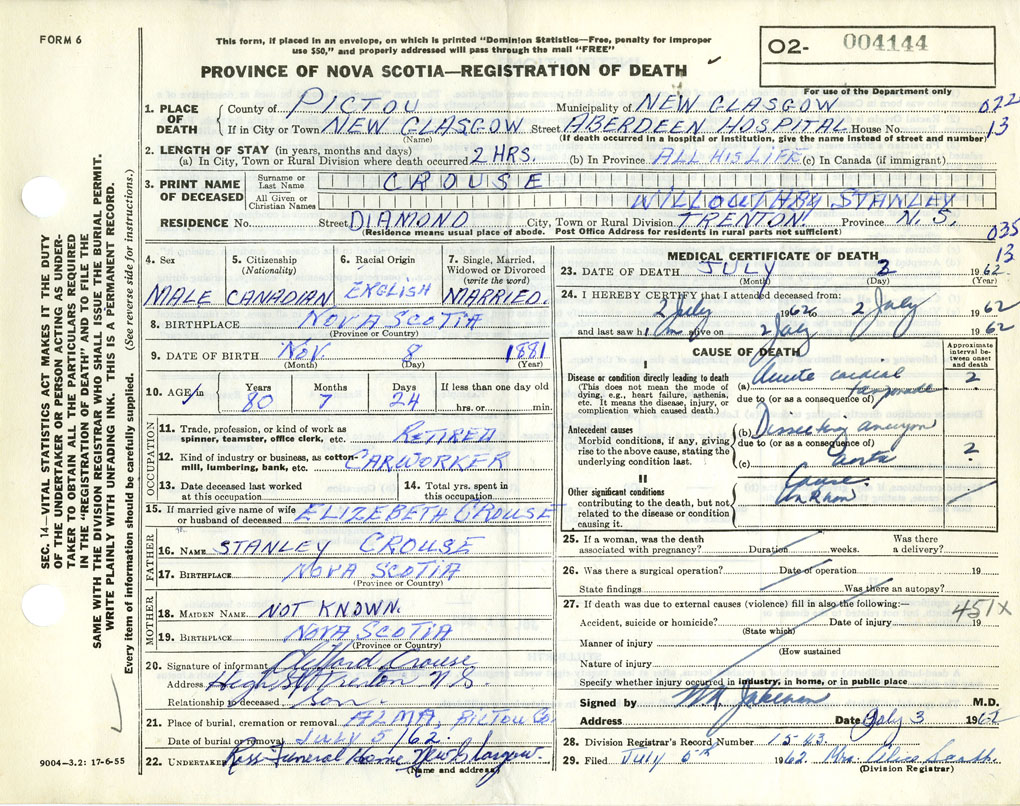 FORM 6
This form, if placed in an envelope, on which is printed "Dominion Statistics—Free, penalty for improper
use $50," and properly addressed will pass through the mail "FREE"
PROVINCE OF NOVA SCOTIA—REGISTRATION OF DEATH
O2- 004144
For use of the Department only
1. PLACE OF DEATH
County of PICTOU Municipality of NEW GLASGOW 022
If in City or Town NEW GLASGOW Street ABERDEEN HOSPITAL House No. 13
(Name) (If death occurred in a hospital or institution, give the name instead of street and number)
2. LENGTH OF STAY (in years, months and days)
(a) In City, Town or Rural Division where death occurred 2 HRS. (b) In Province ALL HIS LIFE (c) In Canada (if immigrant)
3. PRINT NAME OF DECEASED
Surname or Last Name CROUSE
All Given or Christian Names WILLOUTHBY STANLEY
RESIDENCE No. Street DIAMOND City, Town or Rural Division TRENTON Province N.S.
(Residence means usual place of abode. Post Office Address for residents in rural parts not sufficient) 035
13
4. Sex MALE
5. Citizenship (Nationality) CANADIAN
6. Racial Origin ENGLISH
7. Single, Married, Widowed or Divorced (write the word) MARRIED.
8. BIRTHPLACE NOVA SCOTIA
(Province or Country)
9. DATE OF BIRTH NOV. 8 1881
(Month) (Day) (Year)
10. AGE Years 80 Months 7 Days 24 If less than one day old
hrs. or min.
OCCUPATION
11. Trade, profession, or kind of work as
spinner, teamster, office clerk, etc. RETIRED
12. Kind of industry or business, as cotton
mill, lumbering, bank, etc. CARWORKER
13. Date deceased last worked
at this occupation
14. Total yrs. spent in
this occupation
15. If married give name of wife
or husband of deceased ELIZEBETH CROUSE
FATHER
16. NAME STANLEY CROUSE
17. BIRTHPLACE NOVA SCOTIA
(Province or Country)
MOTHER
18. MAIDEN NAME NOT KNOWN.
19. BIRTHPLACE NOVA SCOTIA
(Province or Country)
20. Signature of informant Clifford Crouse
Address High St Trenton N.S.
Relationship to deceased son.
21. Place of burial, cremation or removal ALMA, PICTOU Co.
Date of burial or removal JULY 5/62.
22. UNDERTAKER Ross Funeral Home New Glasgow.
(Name and address)
MEDICAL CERTIFICATE OF DEATH
23. DATE OF DEATH JULY 2 1962. 13
(Month) (Day) (Year)
24. I HEREBY CERTIFY that I attended deceased from:
2 July 1962 to 2 July 1962
and last saw him alive on 2 July 1962
CAUSE OF DEATH
Approximate interval between onset and death
I
Disease or condition directly leading to death
(This does not mean the mode of
dying, e.g., heart failure, asthenia,
etc. It means the disease, injury, or
complication which caused death.)
(a) Acute cardiac tamponade 2
due to (or as a consequence of)
Antecedent causes
Morbid conditions, if any, giving
rise to the above cause, stating the
underlying condition last.
(b) Dissecting aneurysm
due to (or as a consequence of)
(c) aorta 2
II
Other significant conditions
contributing to the death, but not
related to the disease or condition
causing it.
Cause unknown
25. If a woman, was the death
associated with pregnancy? Duration weeks. Was there
a delivery?
26. Was there a surgical operation? Date of operation 19
State findings Was there an autopsy?
27. If death was due to external causes (violence) fill in also the following:— 451X
Accident, suicide or homicide? Date of injury 19
(State which)
Manner of injury
(How sustained
Nature of injury
Specify whether injury occurred in industry, in home, or in public place
Signed by M.D.
Address Date July 3 1962
28. Division Registrar's Record Number 1543.
29. Filed JULY 5th 1962. Mrs.
(Division Registrar)
SEC. 14—VITAL STATISTICS ACT MAKES IT THE DUTY
OF THE UNDERTAKER OR PERSON ACTING AS UNDER-
TAKER TO OBTAIN ALL THE PARTICULARS REQUIRED
IN THE "REGISTRATION OF DEATH" AND TO FILE THE
SAME WITH THE DIVISION REGISTRAR WHO SHALL ISSUE THE BURIAL PERMIT.
WRITE PLAINLY WITH UNFADING INK. THIS IS A PERMANENT RECORD.
Every item of information should be carefully supplied. (See reverse side for instructions.)
9004-3.2: 17-6-55